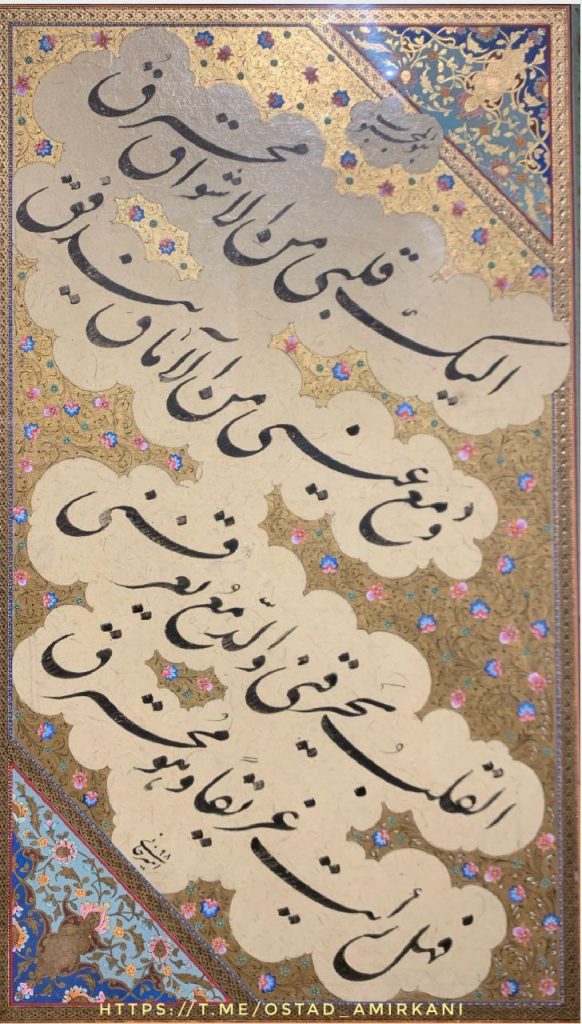 هو المحبوب
الیک قلبی من الاشواق محترق
و دمع عینی من الآماق یندفق
القلب یحرقنی والدّمع یغرقنی
فهل رأیت غریقاً وهو محترق
امیرخانی
HTTPS://T.ME/OSTAD_AMIRKANI